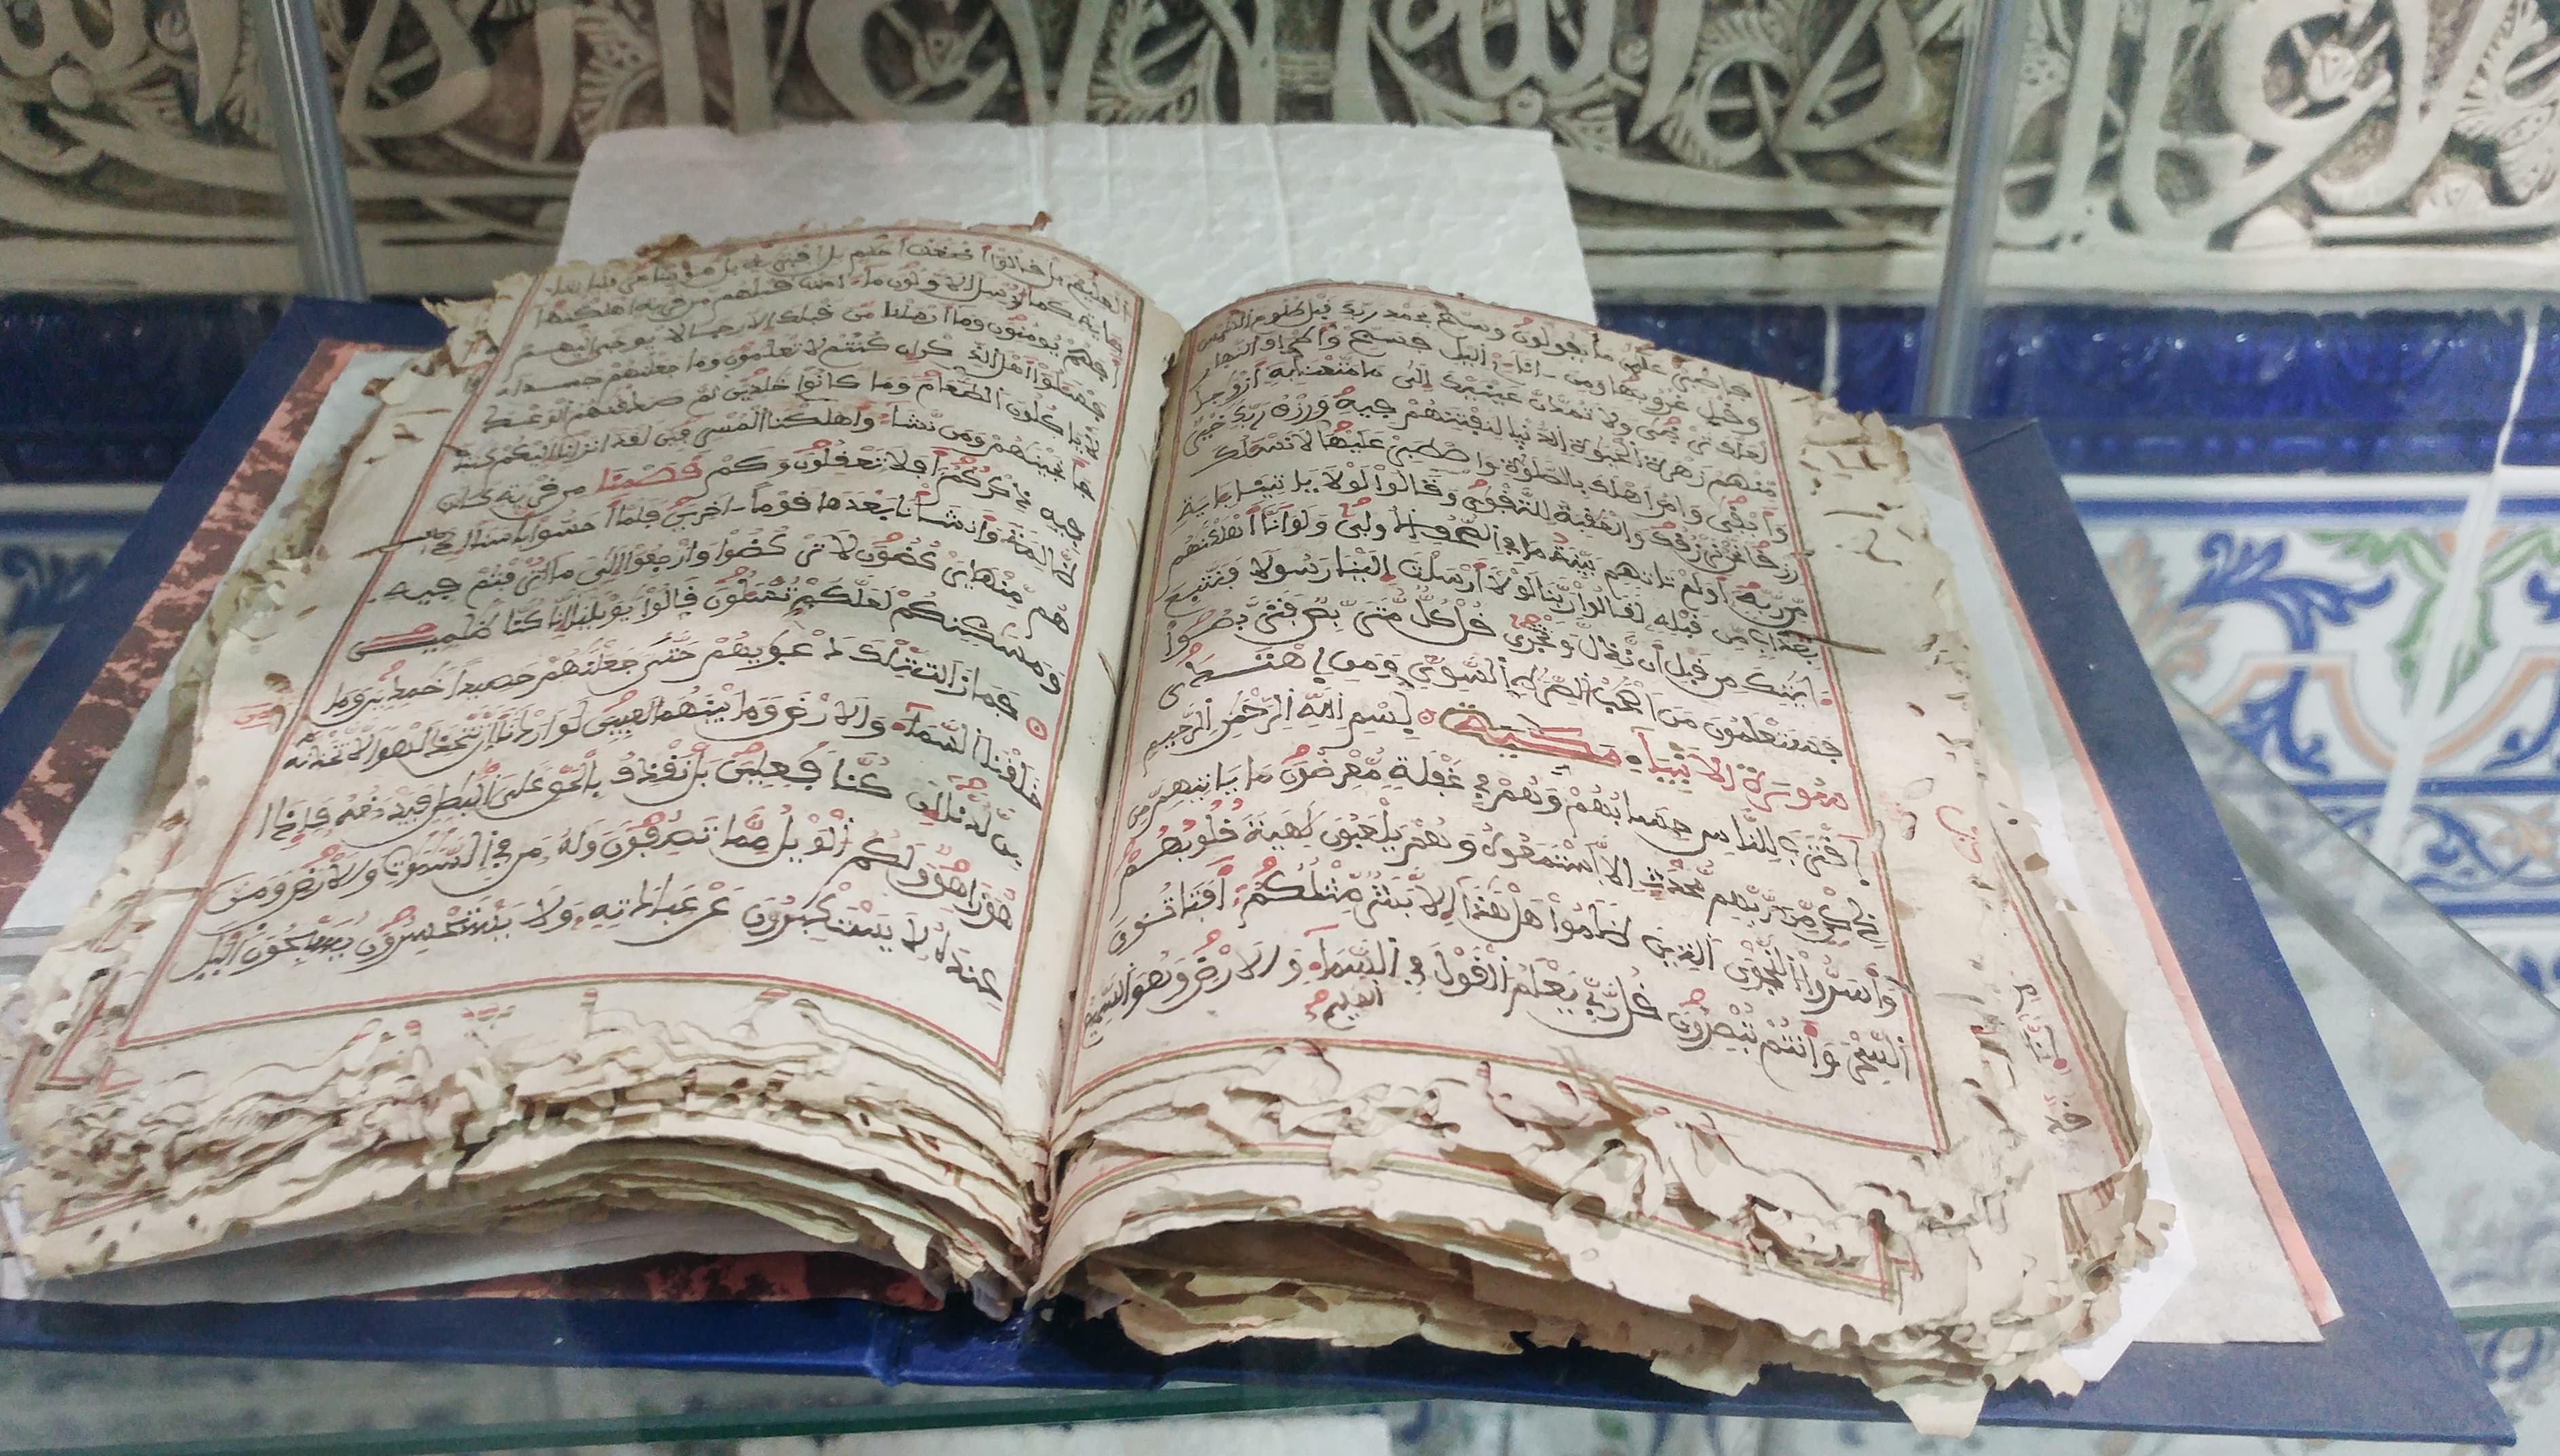 فاصبر على ما يقولون وسبح بحمد ربك قبل طلوع الشمس
وقبل غروبها ومن اناء اليل فسبح واطراف النهار
لعلك ترضى ولا تمدن عينيك الى ما متعنا به ازواجا
منهم زهرة الحيوة الدنيا لنفتنهم فيه ورزق ربك خير
وابقى وامر اهلك بالصلوة واصطبر عليها لا نسئلك
رزقا نحن نرزقك والعقبة للتقوى وقالوا لولا ياتينا باية
من ربه اولم تاتهم بينة ما في الصحف الاولى ولو انا اهلكنهم
بعذاب من قبله لقالوا ربنا لولا ارسلت الينا رسولا فنتبع
ايتك من قبل ان نذل ونخزى قل كل متربص فتربصوا
فستعلمون من اصحب الصرط السوي ومن اهتدى
سورة الانبياء مكية بسم الله الرحمن الرحيم
اقترب للناس حسابهم وهم في غفلة معرضون ما ياتيهم من
ذكر من ربهم محدث الا استمعوه وهم يلعبون لهية قلوبهم
واسروا النجوى الذين ظلموا هل هذا الا بشر مثلكم افتاتون
السحر وانتم تبصرون قل ربي يعلم القول في السماء والارض وهو السميع
العليم
بل قالوا اضغث احلم بل افتريه بل هو شاعر فلياتنا
باية كما ارسل الاولون ما امنت قبلهم من قرية اهلكنها
افهم يومنون وما ارسلنا من قبلك الا رجالا يوحى اليهم
فسئلوا اهل الذكر ان كنتم لا تعلمون وما جعلنهم جسدا
لا ياكلون الطعام وما كانوا خلدين ثم صدقنهم الوعد
فانجينهم ومن نشاء واهلكنا المسرفين لقد انزلنا اليكم كتبا
فيه ذكركم افلا تعقلون وكم قصمنا من قرية كانت
ظالمة وانشانا بعدها قوما اخرين فلما احسوا باسنا اذا
هم منها يركضون لا تركضوا وارجعوا الى ما اترفتم فيه
ومسكنكم لعلكم تسئلون قالوا يويلنا انا كنا ظلمين
فما زالت تلك دعويهم حتى جعلنهم حصيدا خمدين وما
خلقنا السماء والارض وما بينهما لعبين لو اردنا ان نتخذ لهوا لاتخذنه
من لدنا ان كنا فعلين بل نقذف بالحق على البطل فيدمغه فاذا
هو زاهق ولكم الويل مما تصفون وله من في السموت والارض ومن
عنده لا يستكبرون عن عبادته ولا يستحسرون يسبحون اليل